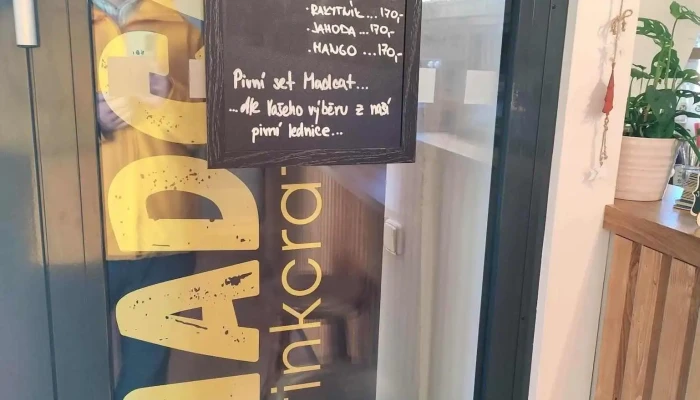 ·RAKYTNÍK...170,-
·JAHODA...170,-
·MANGO...170,-
Pivní set Madcat...
...dle Vašeho výběru z naší
pivní lednice...
MADC
inkcra